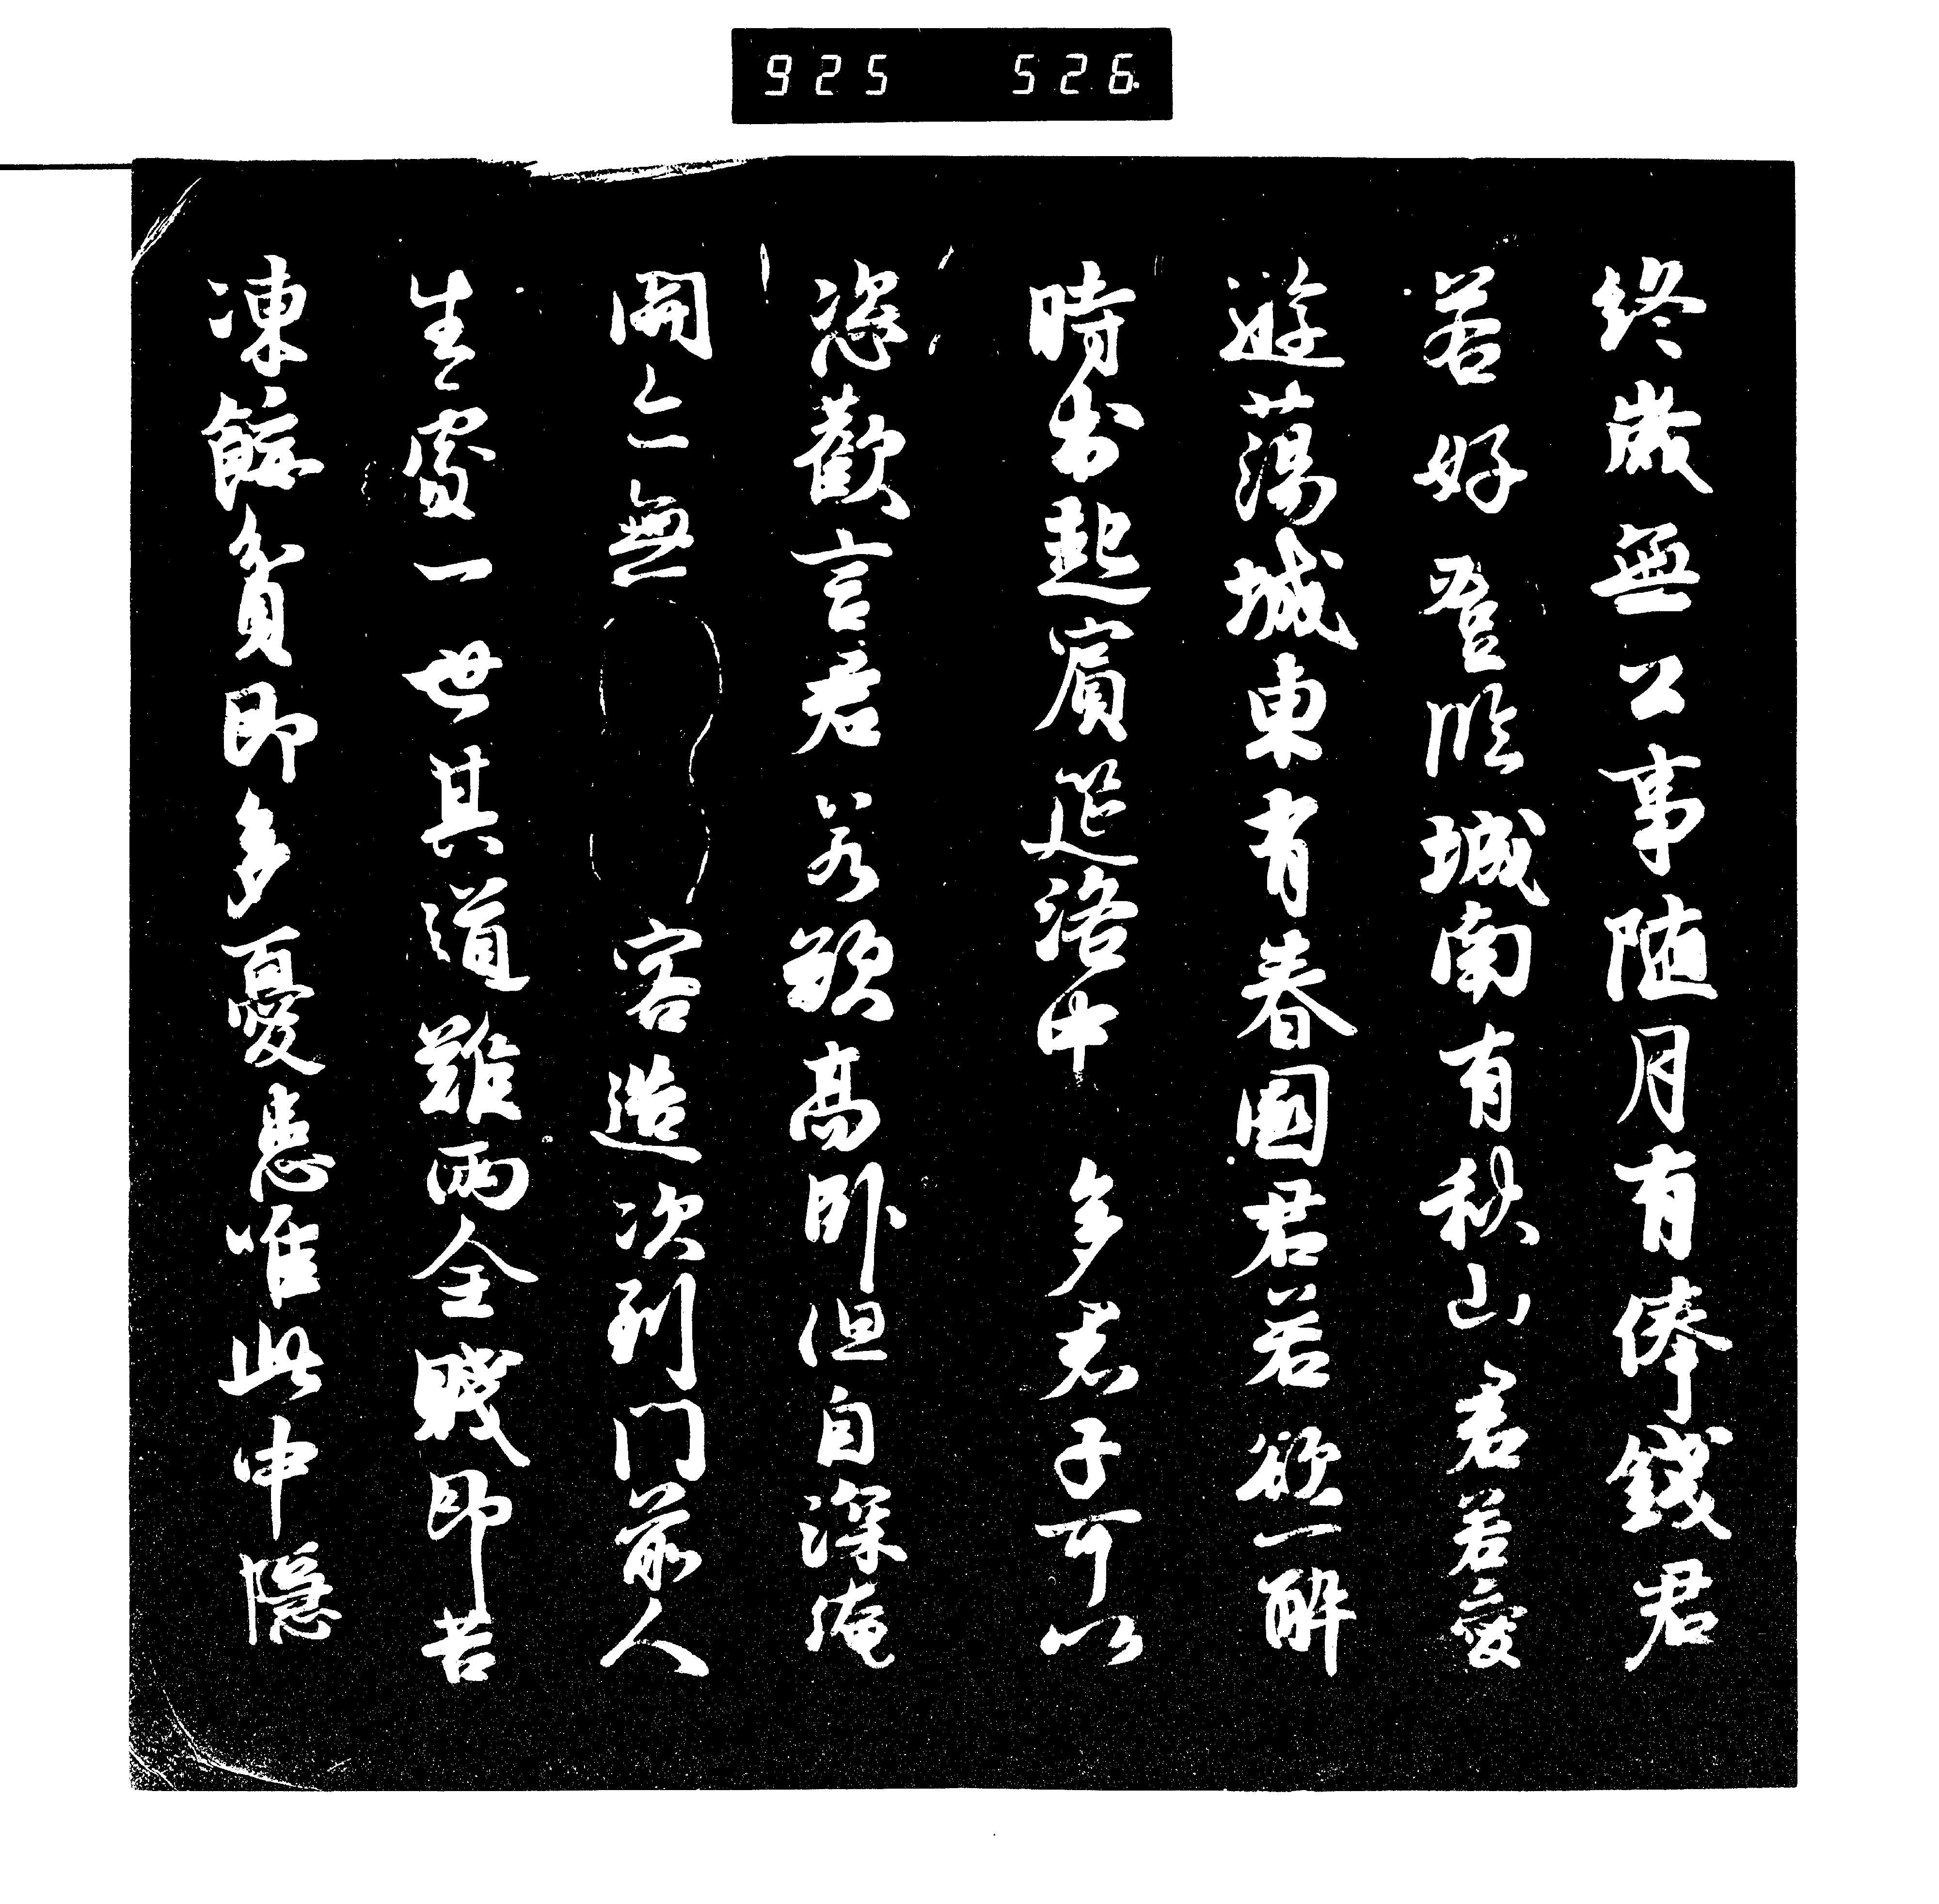 925 526
終歲無公事随月有俸錢君
若好登臨城南有秋山君若愛
遊蕩城東有春園君若欲一醉
時出起賓筵洛中多君子可以
恣歡言君若欲高卧但自深掩
關亦無客造次到門前人
生處一世其道難兩全賤即苦
凍餒貧即多憂患唯此中隱